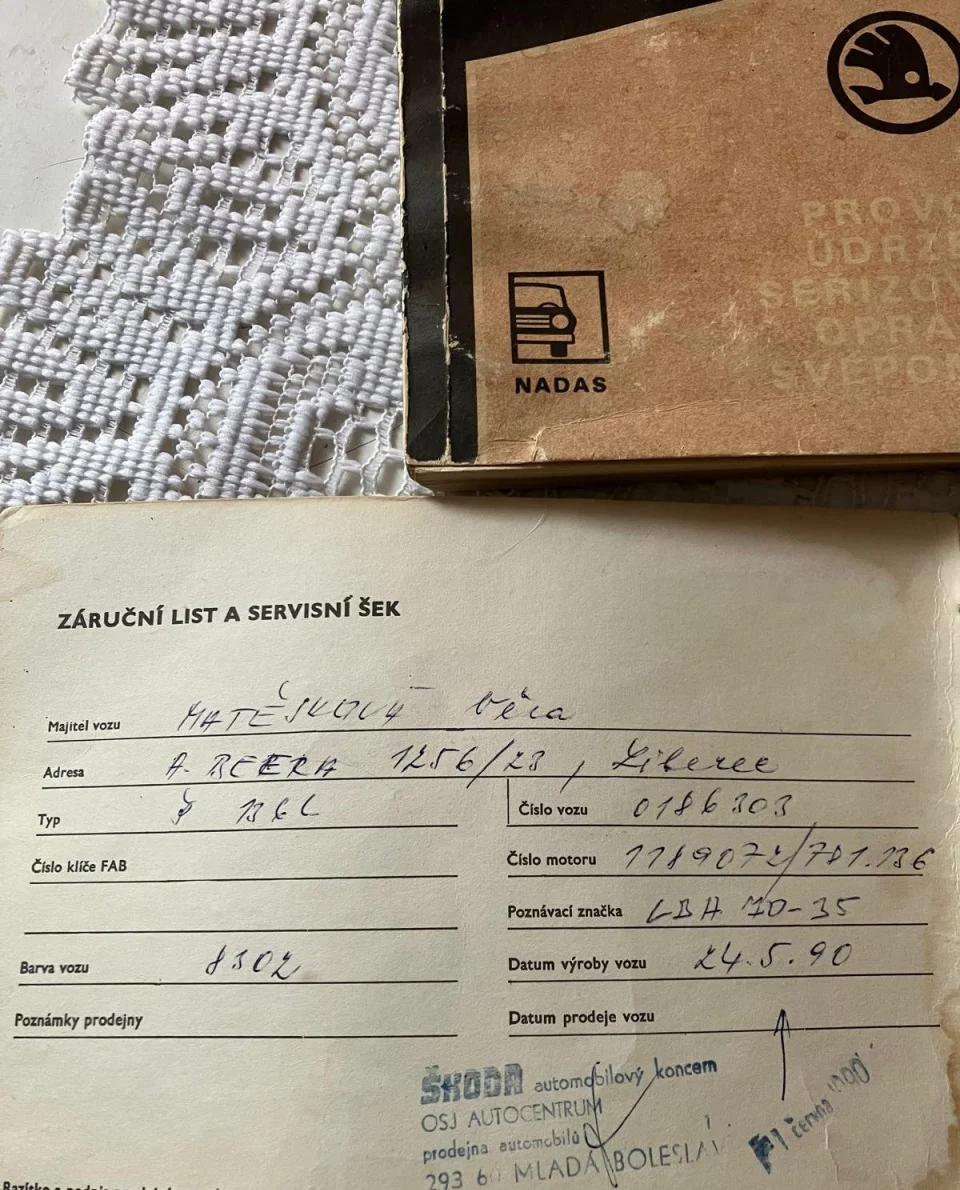 PROVO
ÚDRŽB
SEŘIZOV
OPRA
SVÉPOM
NADAS
ZÁRUČNÍ LIST A SERVISNÍ ŠEK
Majitel vozu MATĚJKOVÁ Věra
Adresa A. BEERA 1256/23, Liberec
Typ Š 136L Číslo vozu 0186303
Číslo klíče FAB Číslo motoru 1189072/781.136
Poznávací značka LBH 70-35
Barva vozu 8302 Datum výroby vozu 24.5.90
Poznámky prodejny Datum prodeje vozu
ŠKODA automobilový koncern
OSJ AUTOCENTRUM
prodejna automobilů
293 60 MLADÁ BOLESLAV
1 června 1990